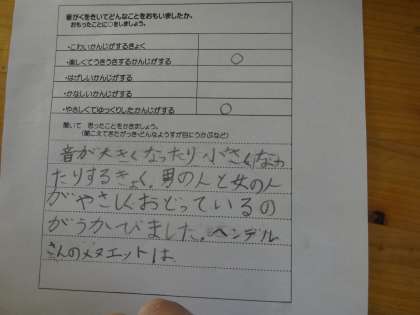 音がくをきいてどんなことをおもいましたか。
おもったことに○をしましょう。
・こわいかんじがするきょく
・楽しくてうきうきするかんじがする ○
・はげしいかんじがする
・かなしいかんじがする
・やさしくてゆっくりしたかんじがする ○
聞いて 思ったことをかきましょう。
(聞こえてきたがっき・どんなようすが目にうかぶなど)
音が大きくなったり小さくなっ
たりするきょく。男の人と女の人
がやさしくおどっているの
がうかびました。ヘンデル
さんのメヌエットは